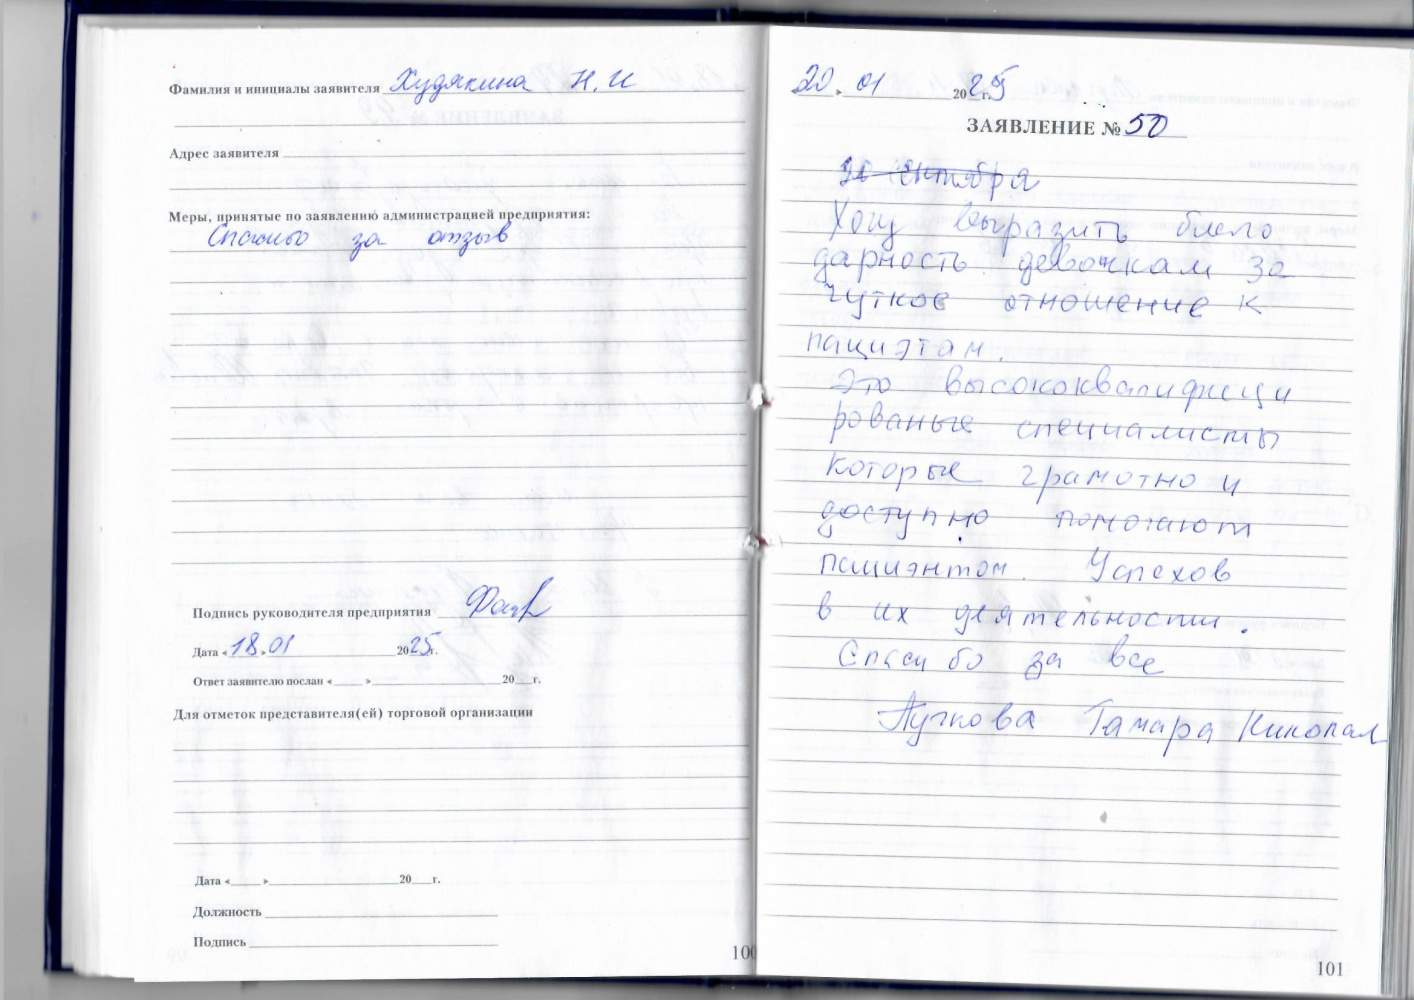 Фамилия и инициалы заявителя Худякина Н. И
Адрес заявителя
Меры, принятые по заявлению администрацией предприятия:
Спасибо за отзыв
Подпись руководителя предприятия
Дата «18.»01 2025г.
Ответ заявителю послан « » 20 г.
Для отметок представителя(ей) торговой организации
Дата « » 20 г.
Должность
Подпись
100
20 » 01 2025 г.
ЗАЯВЛЕНИЕ № 50
Хочу выразить благо
дарность девочкам за
чуткое отношение к
пациэтам.
Это высококвалифици
рованые специалисты
которые грамотно и
доступно помогают
пациэнтом. Успехов
в их деятельности.
Спасибо за все
Пучкова Тамара
101